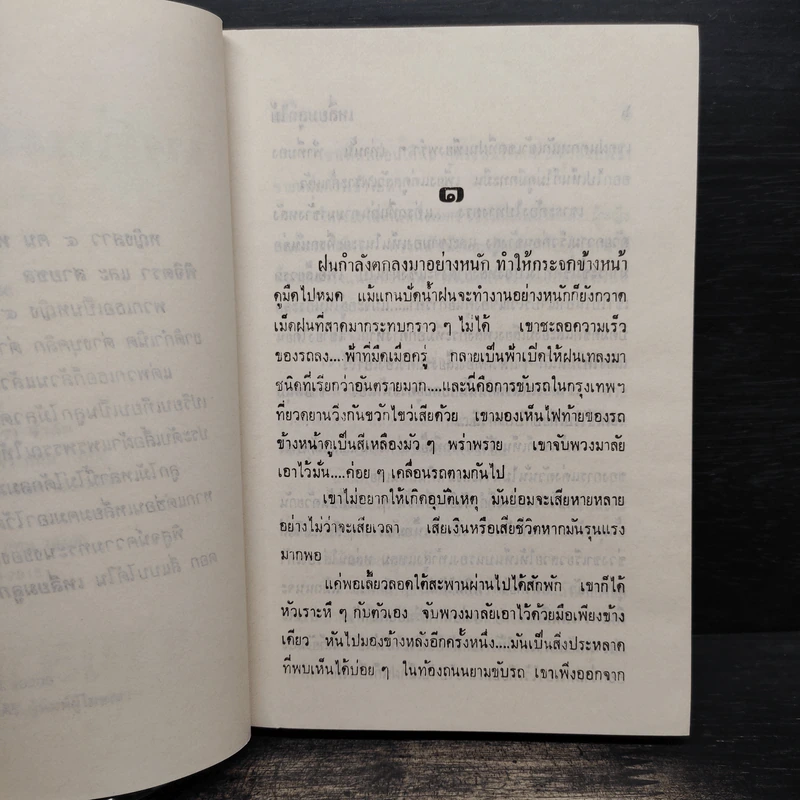 ๑
ฝนกำลังตกลงมาอย่างหนัก ทำให้กระจกข้างหน้า
ดูมืดไปหมด แม้แกนปัดน้ำฝนจะทำงานอย่างหนักก็ยังกวาด
เม็ดฝนที่สาดมากระทบกราว ๆ ไม่ได้ เขาชะลอความเร็ว
ของรถลง....ฟ้าที่มืดเมื่อครู่ กลายเป็นฟ้าเปิดให้ฝนเทลงมา
ชนิดที่เรียกว่าอันตรายมาก....และนี่คือการขับรถในกรุงเทพฯ
ที่ยวดยานวิ่งกันขวักไขว่เสียด้วย เขามองเห็นไฟท้ายของรถ
ข้างหน้าดูเป็นสีเหลืองมัว ๆ พร่าพราย เขาจับพวงมาลัย
เอาไว้มั่น....ค่อย ๆ เคลื่อนรถตามกันไป
เขาไม่อยากให้เกิดอุบัติเหตุ มันย่อมจะเสียหายหลาย
อย่างไม่ว่าจะเสียเวลา เสียเงินหรือเสียชีวิตหากมันรุนแรง
มากพอ
แต่พอเลี้ยวลอดใต้สะพานผ่านไปได้สักพัก เขาก็ได้
หัวเราะหึ ๆ กับตัวเอง จับพวงมาลัยเอาไว้ด้วยมือเพียงข้าง
เดียว หันไปมองข้างหลังอีกครั้งหนึ่ง....มันเป็นสิ่งประหลาด
ที่พบเห็นได้บ่อย ๆ ในท้องถนนยามขับรถ เขาเพิ่งออกจาก